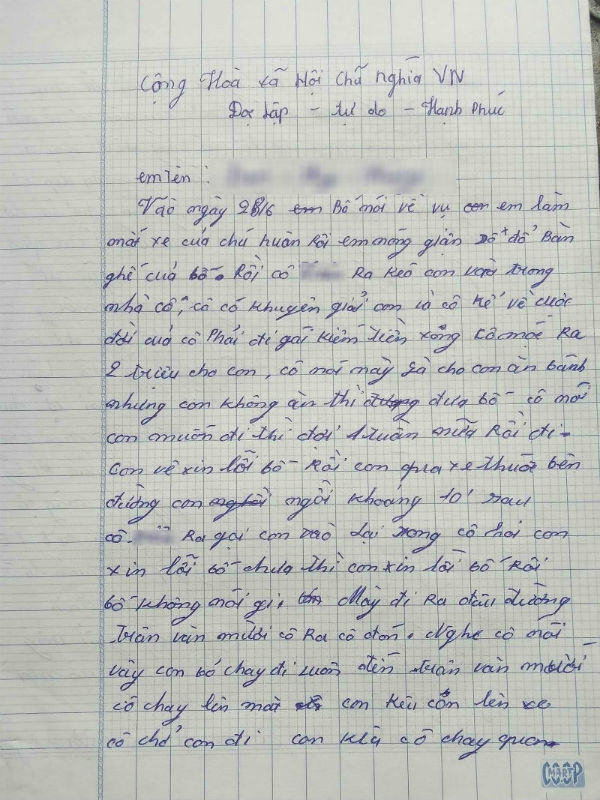 Cộng Hoà xã Hội Chủ nghĩa VN
Độc lập - tự do - Hạnh Phúc
em tên :
Vào ngày 28/6 em Bố nói về vụ con em làm
mất xe của chú huân Rồi em nóng giận xô đổ Bàn
ghế của bố. Rồi cô Ra kéo con vào trong
nhà cô, cô có khuyên giải con là cô kể về cuộc
đời cuả cô Phải đi gái kiếm tiền xong cô móc Ra
2 triệu cho con, cô nói này là cho con ăn bánh
nhưng con không ăn thì đưa bố - cô nói
con muốn đi thì đợi 1 tuần nữa Rồi đi.
Con về xin lỗi bố Rồi con qua xe thuốc bên
đường con ngồi khoảng 10' sau
cô. Ra gọi con vào lại xong cô hỏi con
xin lỗi bố chưa thì con xin lỗi bố Rồi
bố không nói gì. Mày đi Ra đầu đường
trần văn mười cô Ra cô đón. Nghe cô nói
vậy con bỏ chạy đi luôn đến trần văn mười
cô chạy lên mà con kêu con lên xe
cô chở con đi con kêu cô chạy qua
COOP
MART